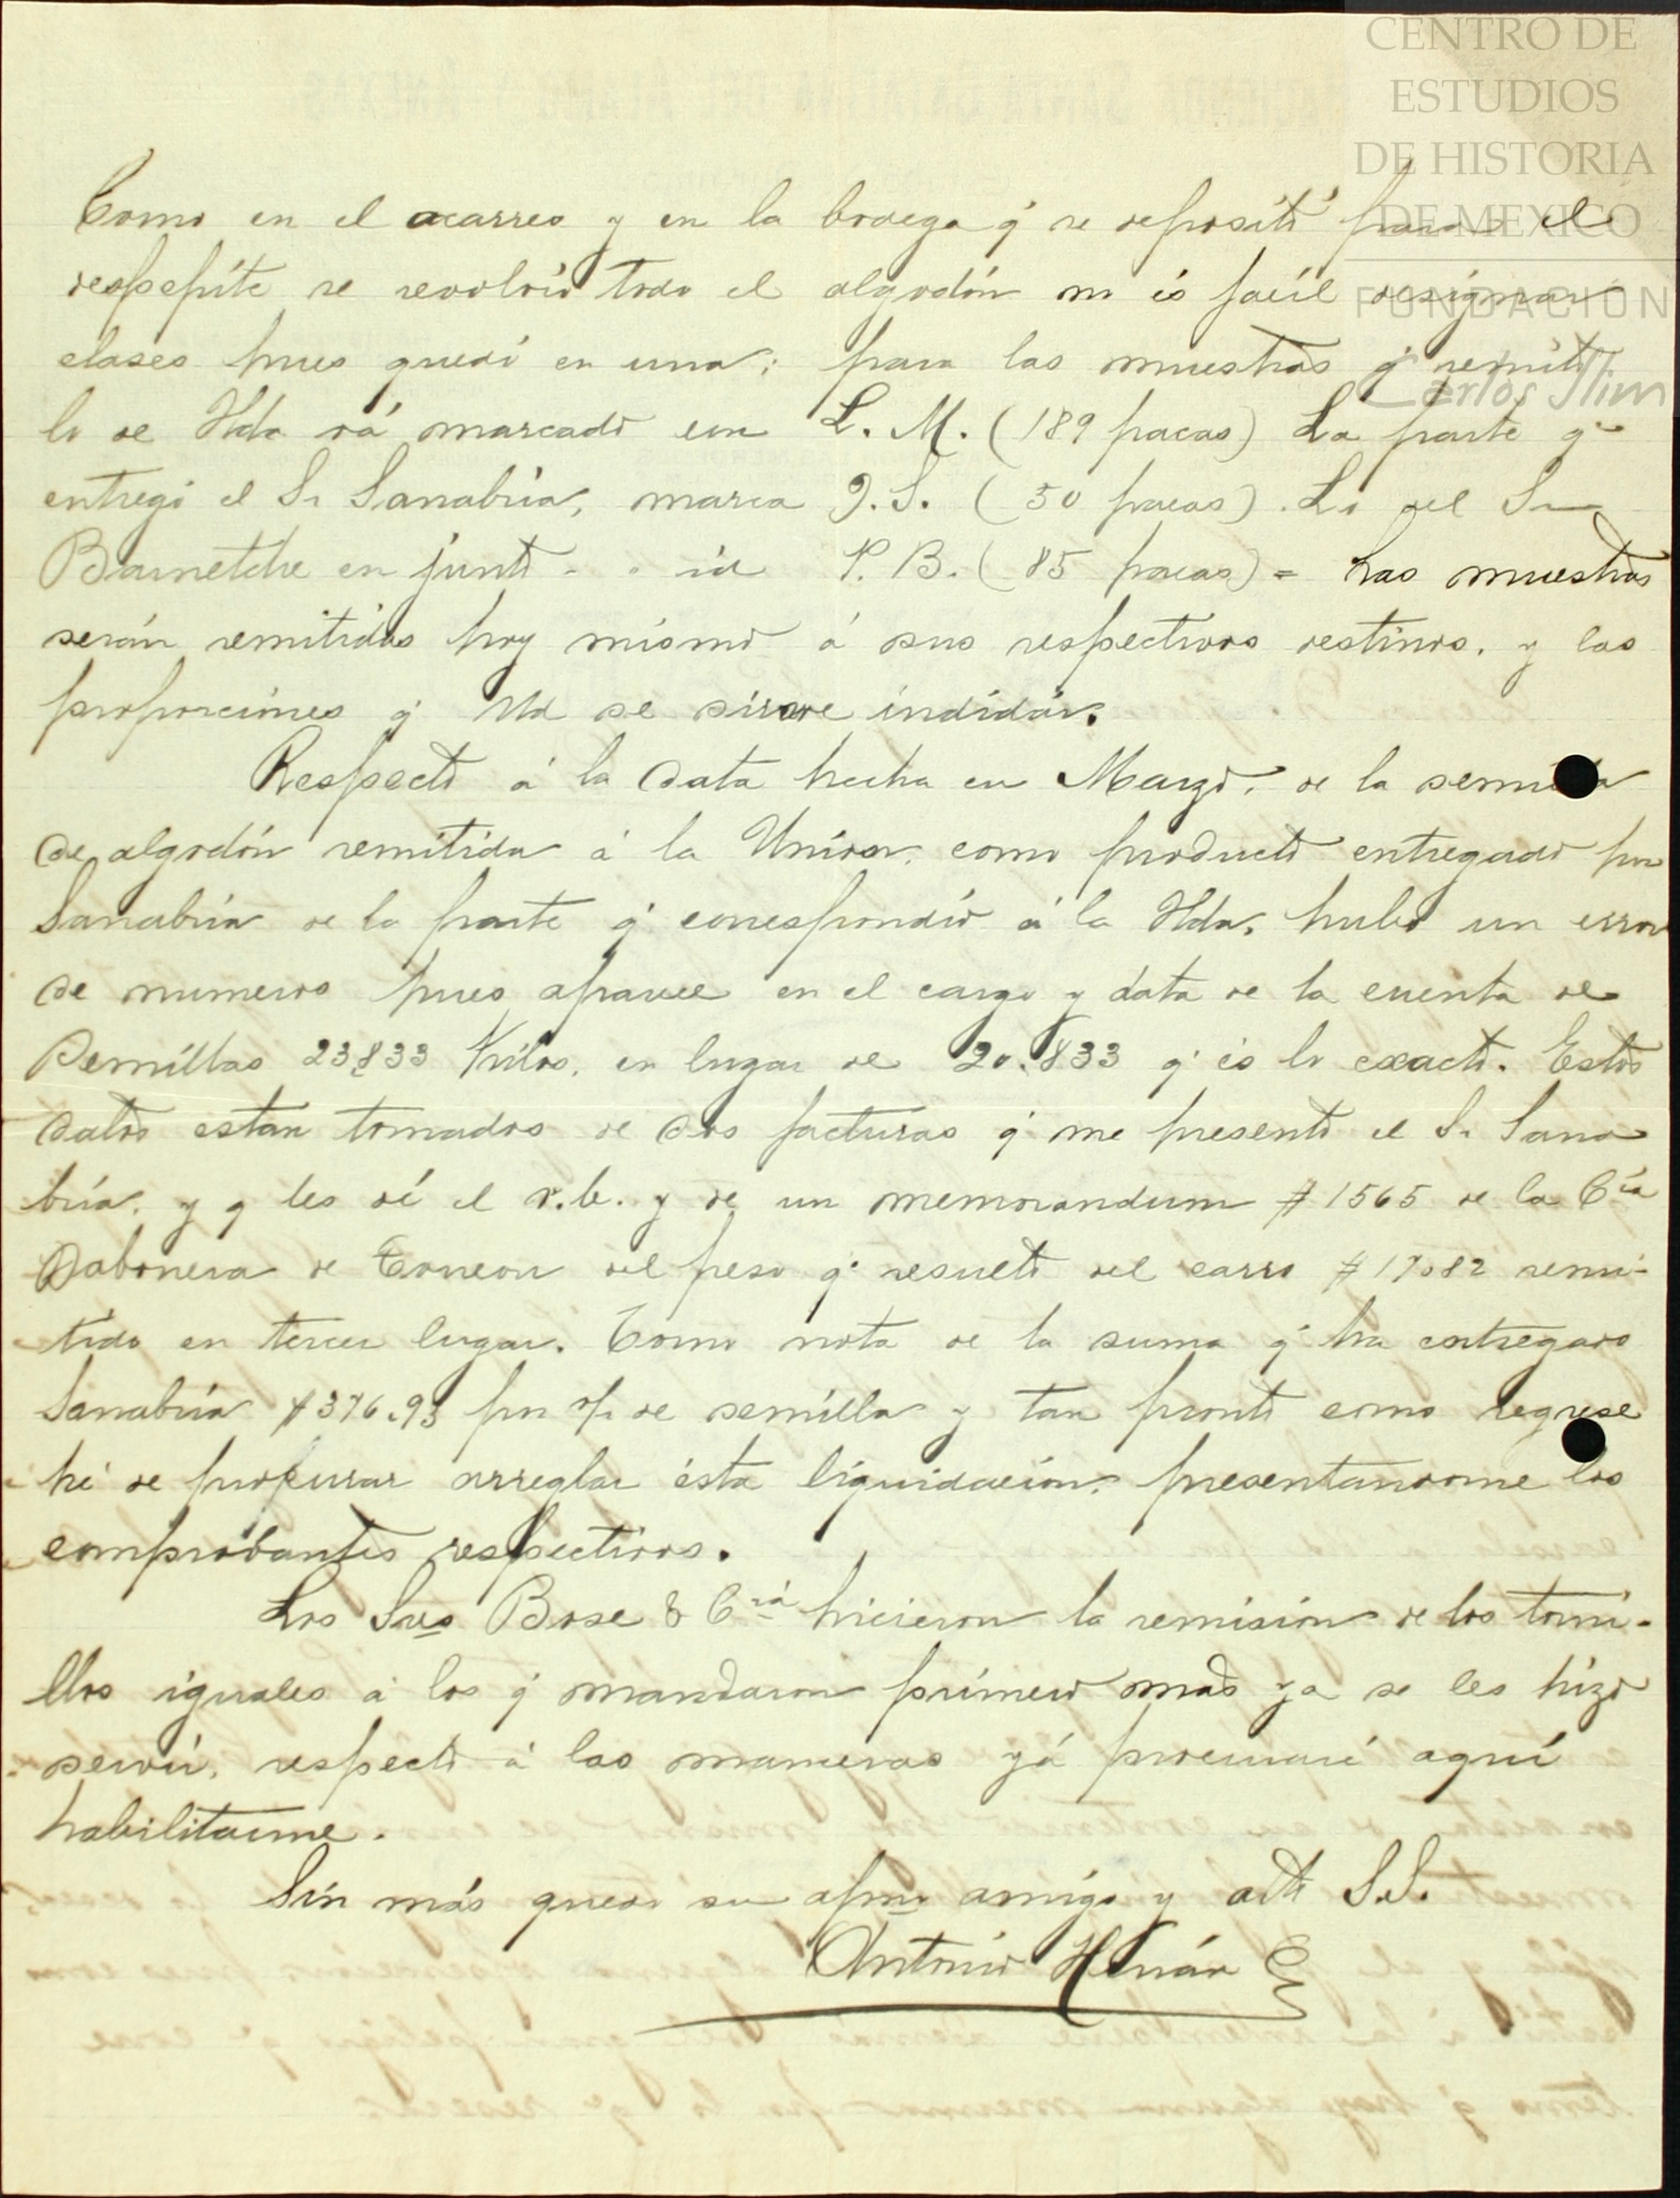 CENTRO DE
ESTUDIOS
DE HISTORIA
DE MEXICO
FUNDACION
Carlos Slim
Como en el acarreo y en la bodega q' se depositó para el
despepíte se revolvió todo el algodón no és facíl designar
clases pues quedó en una; para las muestras q' remito
lo de Hda vá marcado con L. M. (189 pacas) La parte q'
entregó el Sr Sanabria, marca J. S. (50 pacas). Lo del Sr
Barnetche en junto - - id P. B. (85 pacas) = Las muestras
serán remitidas hoy mísmo á sus respectivos destinos. y las
proporciónes q' Ud se sirve indidár.
Respecto á la data hecha en Marzo, de la semilla
de algodón remitida á la Unión, como producto entregado por
Sanabria de la parte q' correspondió á la Hda. hubo un error
de numeros pues aparece en el cargo y data de la cuenta de
Semíllas 23833 Kilos, en lugar de 20.833 q' és lo exacto. Estos
datos estan tomados de dos facturas q' me presentó el Sr Sana
bría, y q les dí el v.b. y de un memorandum # 1565 de la Cía
Jabonera de Torreon del peso q' resultó del carro # 17082 remi-
tido en tercer lugar. Tomo nota de la suma q' ha entregado
Sanabria $376.93 por % de semílla y tan pronto como regrese
hé de procurar arreglar ésta líquidación, presentandome los
comprobantes respectivos.
Los Sres Bose & Cía hicieron la remisión de los torni-
llos iguales á los q' mandaron prímero mas ya se les hizo
servír, respecto á las mangueras yá procuraré aquí
habilitarme.
Sín más quedo su afmo amígo y atto S.S.
Antonio